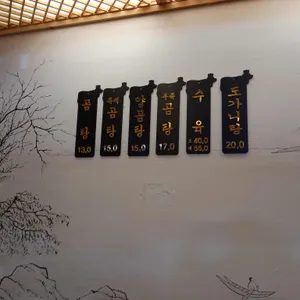 곰탕
13,0
특곰탕
15,0
양곰탕
15,0
우족곰탕
17,0
수육
40,0
55,0
도가니탕
20,0